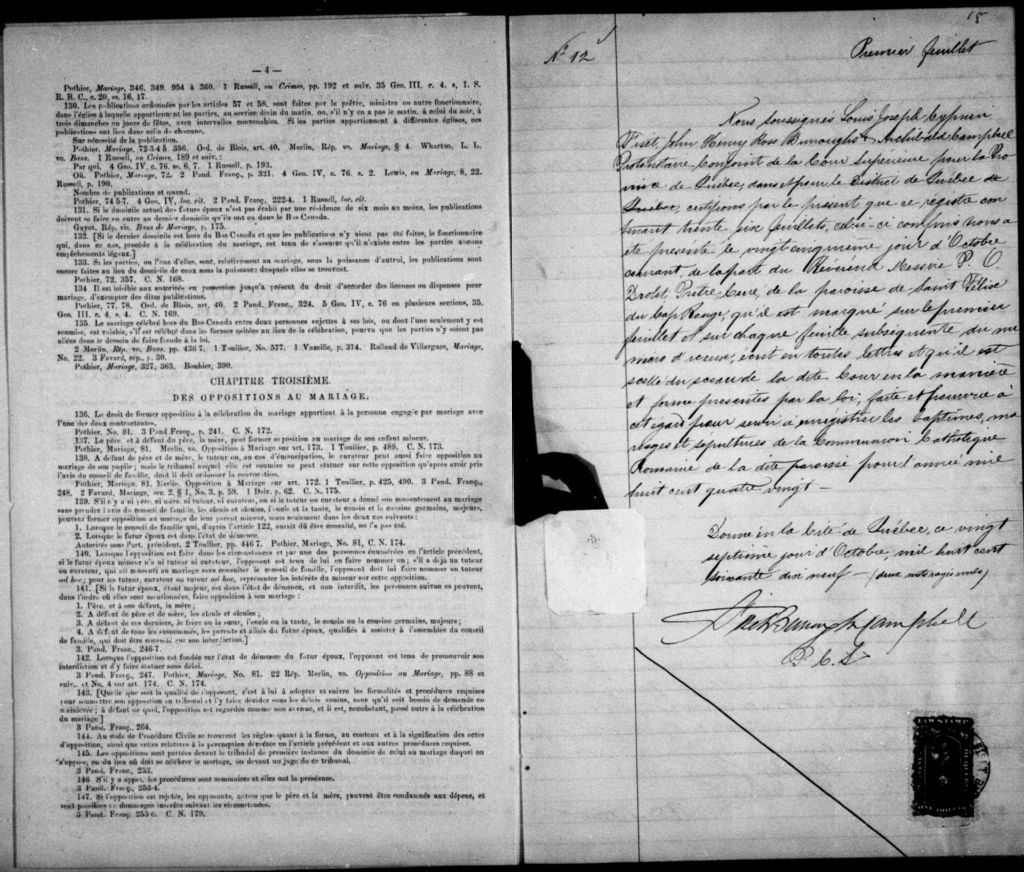 — 4 —
Pothier, Mariage, 346, 349, 954 à 360. 1 Russell, on Crimes, pp. 192 et suiv. 35 Geo. III. c. 4, s, 1. S.
R. B. C., c. 20, ss. 16, 17.
130. Les publications ordonnées par les articles 57 et 58, sont faites par le prêtre, ministre ou autre fonctionnaire,
dans l'église à laquelle appartiennent les parties, au service divin du matin, ou, s'il n'y en a pas le matin, à celui du soir, à
trois dimanches ou jours de fêtes, avec intervalles convenables. Si les parties appartiennent à différentes églises, ces
publications ont lieu dans celle de chacune.
Sur nécessité de la publication.
Pothier, Mariage, 72-3-4 à 356. Ord. de Blois, art. 40. Merlin, Rép. vo. Mariage, § 4. Wharton, L. L.
vo. Bans. 1 Russell, on Crimes, 189 et suiv. :
Par qui. 4 Geo. IV, c. 76, s. 6, 7. 1 Russell, p. 193.
Où. Pothier, Mariage, 72. 2 Pand. Franç., p. 321. 4 Geo. IV, c. 76, s. 2. Lewis, on Mariage, 8, 22.
Russell, p. 190.
Nombre de publications et quand.
Pothier, 74 5-7. 4 Geo. IV, loc. cit. 2 Pand. Franç., 222-4. 1 Russell, loc. cit.
131. Si le domicile actuel des futurs époux n'est pas établi par une résidence de six mois au moins, les publications
doivent se faire en outre au dernier domicile qu'ils ont eu dans le Bas Canada.
Guyot, Rép. vis. Bans de Mariage, p. 175.
132. [Si le dernier domicile est hors du Bas Canada et que les publications n'y aient pas été faites, le fonctionnaire
qui, dans ce cas, procède à la célébration du mariage, est tenu de s'assurer qu'il n'existe entre les parties aucuns
empêchements légaux.]
133. Si les parties, ou l'une d'elles, sont, relativement au mariage, sous la puissance d'autrui, les publications sont
encore faites au lieu du domicile de ceux sous la puissance desquels elles se trouvent.
Pothier, 72, 357. C. N. 168.
134 Il est loisible aux autorités en possession jusqu'à présent du droit d'accorder des licences ou dispenses pour
mariage, d'exempter des dites publications.
Pothier, 77, 78. Ord. de Blois, art. 40, 2 Pand. Franç., 324. 5 Geo. IV, c. 76 en plusieurs sections, 35,
Geo. III. c. 4, s. 4. C. N. 169.
135. Le mariage célébré hors du Bas-Canada entre deux personnes sujettes à ses lois, ou dont l'une seulement y est
soumise, est valable, s'il est célébré dans les formes usitées au lieu de la célébration, pourvu que les parties n'y soient pas
allées dans le dessein de faire fraude à la loi.
2 Merlin, Rép. vo. Bans. pp. 436 7. 1 Toullier, No. 577. 1 Vazeille, p. 314. Rolland de Villargues, Mariage,
No. 22. 3 Favard, rép., p. 30.
Pothier, Mariage, 327, 363. Bouhier, 390.
CHAPITRE TROISIÈME.
DES OPPOSITIONS AU MARIAGE.
136. Le droit de former opposition à la célébration du mariage appartient à la personne engagée par mariage avec
l'une des deux contractantes.
Pothier, No. 81. 3 Pand Franç., p. 241. C. N. 172.
137. Le père, et à défaut du père, la mère, peut former opposition au mariage de son enfant mineur.
Pothier, Mariage, 81. Merlin, vo. Opposition à Mariage sur art. 173. 1 Toullier, p. 489. C. N. 173.
138. A défaut de père et de mère, le tuteur ou, au cas d'émancipation, le curateur peut aussi faire opposition au
mariage de son pupile ; mais le tribunal auquel elle est soumise ne peut statuer sur cette opposition qu'après avoir pris
l'avis du conseil de famille, dont il doit ordonner la convocation.
Pothier, Mariage, 81. Merlin, Opposition à Mariage sur art. 172. 1 Toullier, p. 425, 490. 3 Pand. Franç.,
248. 2 Favard, Mariage, sec. 2, § 1, No. 3, p. 59. 1 Delv. p. 62. C. N. 175.
139. S'il n'y a ni père, ni mère, ni tuteur, ni curateur, ou si le tuteur ou curateur a donné son consentement au mariage
sans prendre l'avis du conseil de famille, les aïeuls et aïeules, l'oncle et la tante, le cousin et la cousine germains, majeurs,
peuvent former opposition au mariage de leur parent mineur, mais seulement dans les deux cas suivants :
1. Lorsque le conseil de famille qui, d'après l'article 122, aurait dû être consulté, ne l'a pas été.
2. Lorsque le futur époux est dans l'état de démence.
Autorités sous l'art. précédent, 2 Toullier, pp. 446 7. Pothier, Mariage, No. 81, C. N. 174.
140. Lorsque l'opposition est faite dans les circonstances et par une des personnes énumérées en l'article précédent,
si le futur époux mineur n'a ni tuteur ni curateur, l'opposant est tenu de lui en faire nommer un ; s'il a déjà un tuteur
ou curateur, qui ait consenti au mariage sans consulter le conseil de famille, l'opposant doit lui faire nommer un tuteur
ad hoc ; pour les tuteur, curateur ou tuteur ad hoc, représenter les intérêts du mineur sur cette opposition.
141. [Si le futur époux, étant majeur, est dans l'état de démence, et non interdit, les personnes suivantes peuvent,
dans l'ordre où elles sont mentionnées, faire opposition à son mariage :
1. Père, et à son défaut, la mère ;
2. A défaut de père et de mère, les aïeuls et aïeules ;
3. A défaut de ces derniers, le frère ou la sœur, l'oncle ou la tante, le cousin ou la cousine germains, majeurs ;
4. A défaut de tous les susnommés, les parents et alliés du futur époux, qualifiés à assister à l'assemblée du conseil
de famille, qui doit être consulté sur son interdiction.]
3. Pand. Franç., 246-7.
142. Lorsque l'opposition est fondée sur l'état de démence du futur époux, l'opposant est tenu de promouvoir son
interdiction et d'y faire statuer sans délai.
3 Pand. Franç., 247. Pothier, Mariage, No. 81. 22 Rép. Merlin, vo. Opposition au Mariage, pp. 88 et
suiv., et No. 4 sur art. 174. C. N. 174.
143. [Quelle que soit la qualité de l'opposant, c'est à lui à adopter et suivre les formalités et procédures requises
pour soumettre son opposition au tribunal et l'y faire décider sous les délais voulus, sans qu'il soit besoin de demande en
mainlevée ; à défaut de quoi, l'opposition est regardée comme non avenue, et il est, nonobstant, passé outre à la célébration
du mariage.]
3 Pand. Franç., 264.
144. Au code de Procédure Civile se trouvent les règles quant à la forme, au contenu et à la signification des actes
d'opposition, ainsi que celles relatives à la péremption décrétée en l'article précédent et aux autres procédures requises.
145. Les oppositions sont portées devant le tribunal de première instance du domicile de celui au mariage duquel on
s'oppose, ou du lieu où doit se célébrer le mariage, ou devant un juge de ce tribunal.
3 Pand. Franc., 253.
146. S'il y a appel, les procédures sont sommaires et elles ont la préséance.
3 Pand. Franç., 253-4.
147. Si l'opposition est rejetée, les opposants, autres que le père et la mère, peuvent être condamnés aux dépens, et
sont passibles de dommages intérêts suivant les circonstances.
3 Pand. Franç. 255 6. C. N. 179.
18
No 12
Premier feuillet
Nous soussignés Louis Joseph Cyprien
Fiset, John Henry Ross Burroughs & Archibald Campbell
Protonotaire Conjoint de la Cour Supérieure pour la Pro
vince de Québec, dans et pour le District de Québec de
Québec, certifions par le présent que ce registre con
tenant trente six feuillets, celui-ci compris nous a
été présenté le vingt cinquième jour d'Octobre
courant, de la part du Révérend Messire P. O.
Drolet, Prêtre, Curé, de la paroisse de Saint Félix
du Cap Rouge, qu'il est marqué sur le premier
feuillet et sur chaque feuille subséquente du nu
méro d'iceux, écrit en toutes lettres et qu'il est
scellé du sceau de la dite Cour en la manière
et forme presentes par la loi, faite et pourvue à
cet égard pour servir à enregistrer les baptêmes, ma
riages et sépultures de la Communion Catholique
Romaine de la dite paroisse pour l'année mil
huit cent quatre vingt —
Donné en la Cité de Québec, ce vingt
septième jour d'Octobre, mil huit cent
soixante dix neuf (deux mots rayés nuls)
Fiset Burroughs Campbell
P. C. S
LAW STAMP
ONE DOLLAR